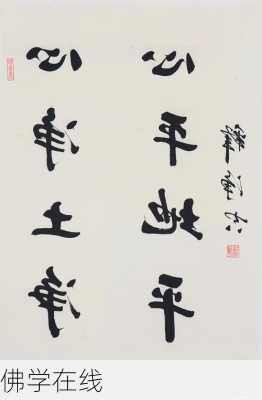 心净土净
心平地平
佛学在线